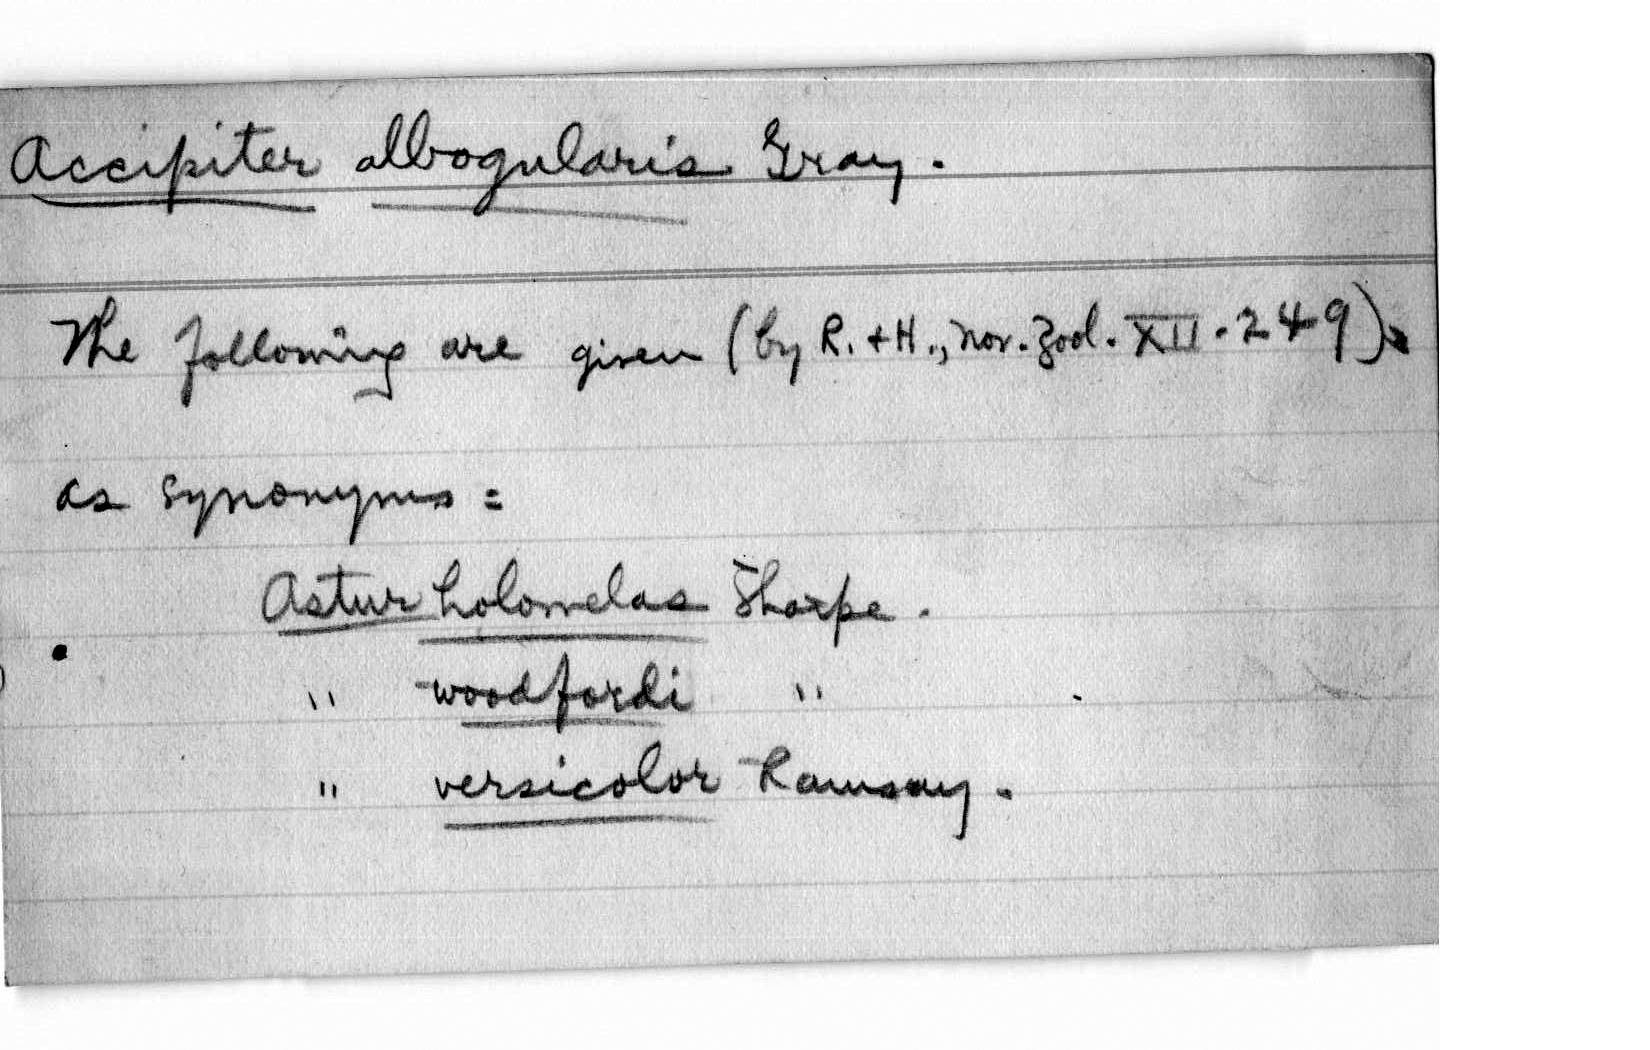 Accipiter albogularis Gray.
The following are given (by R. + H., Nov. Zool. XII. 249)
as synonyms:
Astur holomelas Sharpe.
" woodfordi "
" versicolor Ramsay.